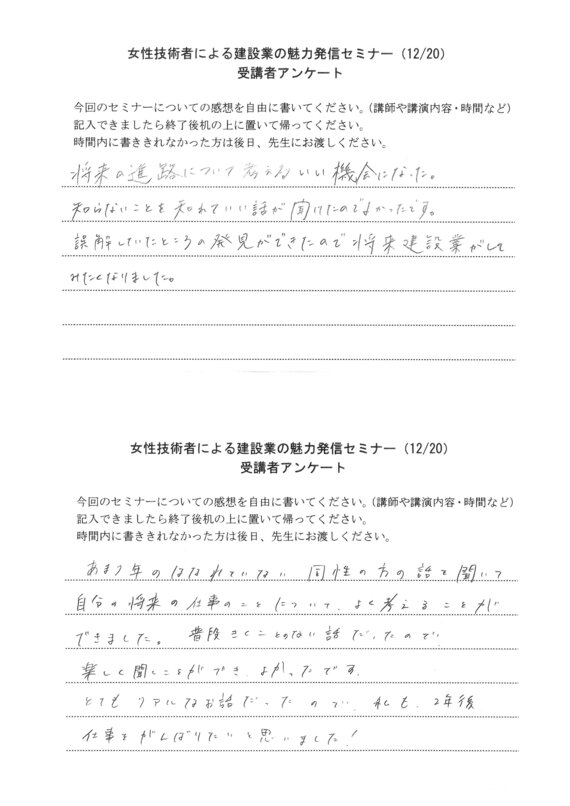 女性技術者による建設業の魅力発信セミナー（12/20）
受講者アンケート
今回のセミナーについての感想を自由に書いてください。（講師や講演内容・時間など）
記入できましたら終了後机の上に置いて帰ってください。
時間内に書ききれなかった方は後日、先生にお渡しください。
将来の進路について考えるいい機会になった。
知らないことを知れていい話が聞けたのでよかったです。
誤解していたところの発見ができたので将来建設業がしてみ
みたくなりました。
女性技術者による建設業の魅力発信セミナー（12/20）
受講者アンケート
今回のセミナーについての感想を自由に書いてください。（講師や講演内容・時間など）
記入できましたら終了後机の上に置いて帰ってください。
時間内に書ききれなかった方は後日、先生にお渡しください。
あまり年のはなれていない 同性の方の話を聞いて
自分の将来の仕事のことについて、よく考えることが
できました。 普段きくことのない話だったので
楽しく聞くことができ、よかったです。
とてもリアルなお話だったので、私も、2年後
仕事をがんばりたいと思いました！